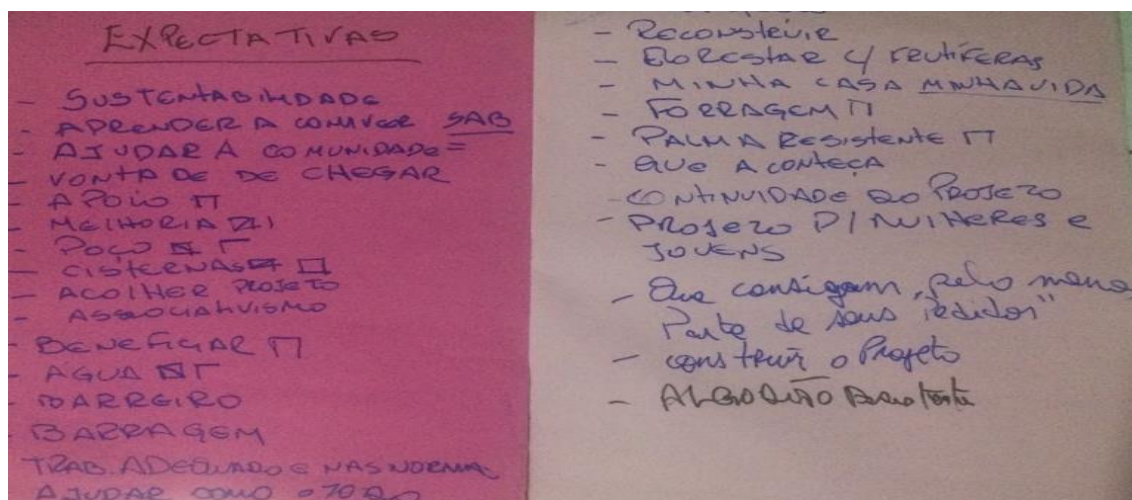 EXPECTATIVAS
- SUSTENTABILIDADE
- APRENDER A CONVIVER SAB
- AJUDAR A COMUNIDADE =
- VONTADE DE CHEGAR
- APOIO
- MELHORIA
- POÇO
- CISTERNAS
- ACOLHER PROJETO
- ASSOCIATIVISMO
- BENEFICIAR
- AGUA
- BARREIRO
- BARRAGEM
TRAB. ADEQUADO E NAS NORMAS
AJUDAR COMO O TODO
- RECONSTRUIR
- FLORESTAR C/ FRUTÍFERAS
- MINHA CASA MINHA VIDA
- FORRAGEM
- PALMA RESISTENTE
- QUE ACONTEÇA
- CONTINUIDADE DO PROJETO
- PROJETO P/ MULHERES E
JOVENS
- Que consigam, pelo menos
Parte de seus pedidos"
- construir o Projeto
- ALGODÃO